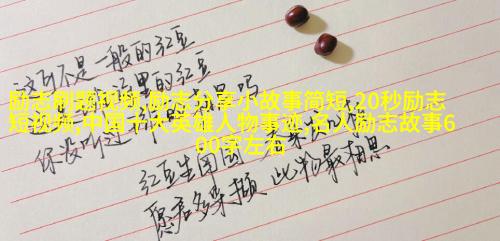 这可不是一般的红豆
这里的红豆
励志刷题视频,励志分享小故事简短,20秒励志
短视频,中国十大英雄人物事迹,名人励志故事6
00字左右
你没听过
吗
红豆生南国
愿君多采撷 此物最相思